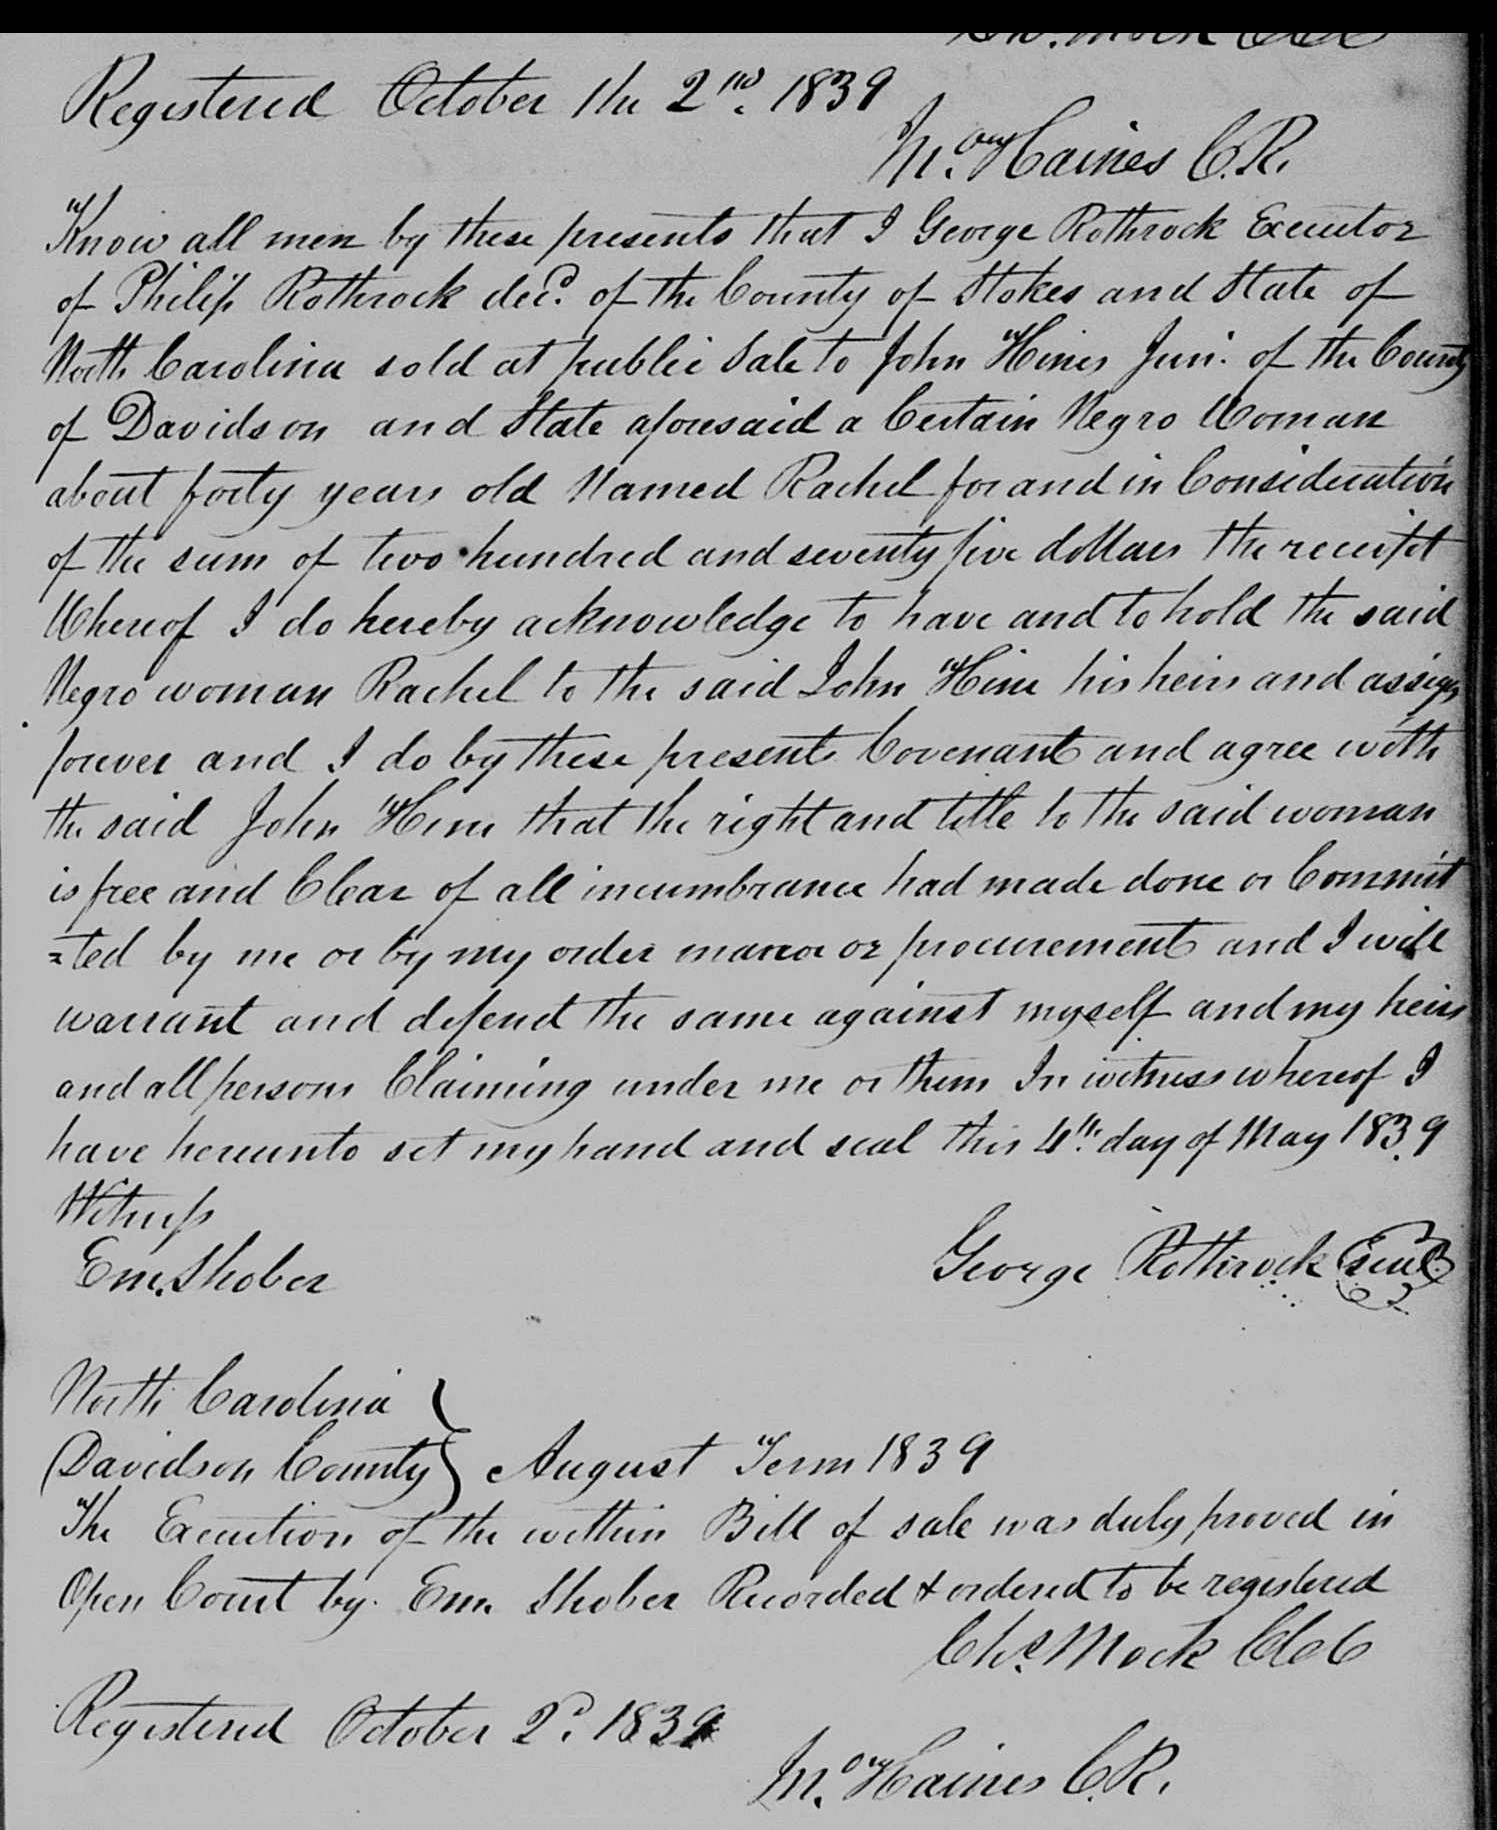 Chs. Mock CCC
Registered October the 2nd. 1839
Mo. Haines C.R.
Know all men by these presents that I George Rothrock Executor
of Philip Rothrock decd. of the County of Stokes and State of
North Carolina sold at public Sale to John Hines Junr. of the County
of Davidson and State aforesaid a Certain Negro Woman
about forty years old Named Rachel for and in Consideration
of the sum of two hundred and seventy five dollars the receipt
Whereof I do hereby acknowledge to have and to hold the said
Negro woman Rachel to the said John Hine his heirs and assigns
forever and I do by these presents Covenant and agree with
the said John Hine that the right and title to the said woman
is free and Clear of all incumbrance had made done or Commit
=ted by me or by my order or procurement and I will
warrant and defend the same against myself and my heirs
and all persons Claiming under me or them In witness whereof I
have hereunto set my hand and seal this 4th. day of May 1839
Witness
Em. Shober George Rothrock Seal
North Carolina
Davidson County } August Term 1839
The Execution of the within Bill of sale was duly proved in
Open Court by Em. Shober Recorded & ordered to be registered
Chs. Mock CCC
Registered October 2d. 1839
Mo. Haines C.R.